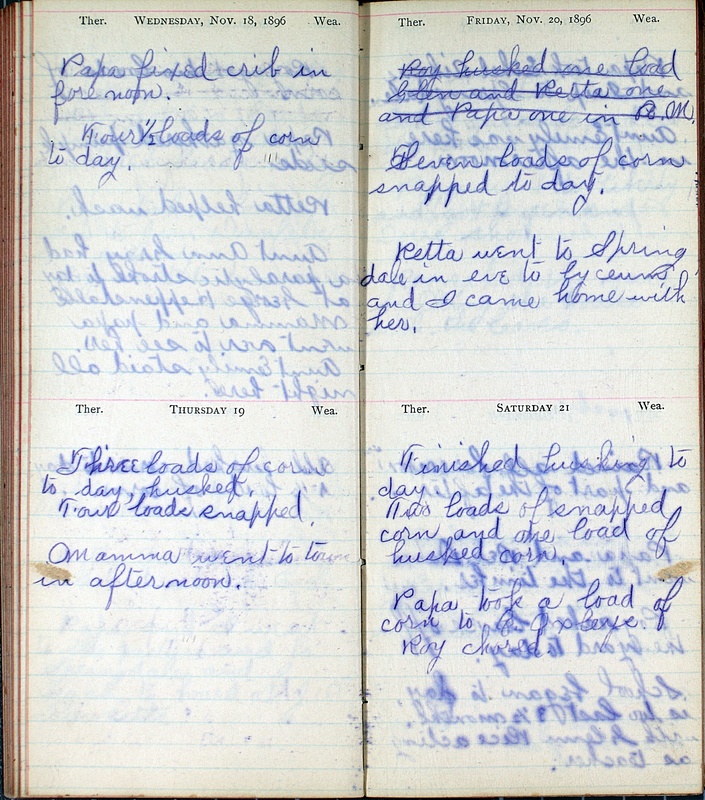 Ther. WEDNESDAY, NOV. 18, 1896 Wea.
Papa fixed crib in
fore noon.
Four ½ loads of corn
to day.
Ther. THURSDAY 19 Wea.
Three loads of corn
to day, husked.
Four loads snapped.
Mamma went to town
in afternoon.
Ther. FRIDAY, NOV. 20, 1896 Wea.
Roy husked one load
Glen and Retta one
and Papa one in P.M.
Seven loads of corn
snapped to day.
Retta went to Spring
dale in eve to lyceum
and I came home with
her.
Ther. SATURDAY 21 Wea.
Finished husking to
day
Two loads of snapped
corn and one load of
husked corn.
Papa took a load of
corn to
Roy chored.